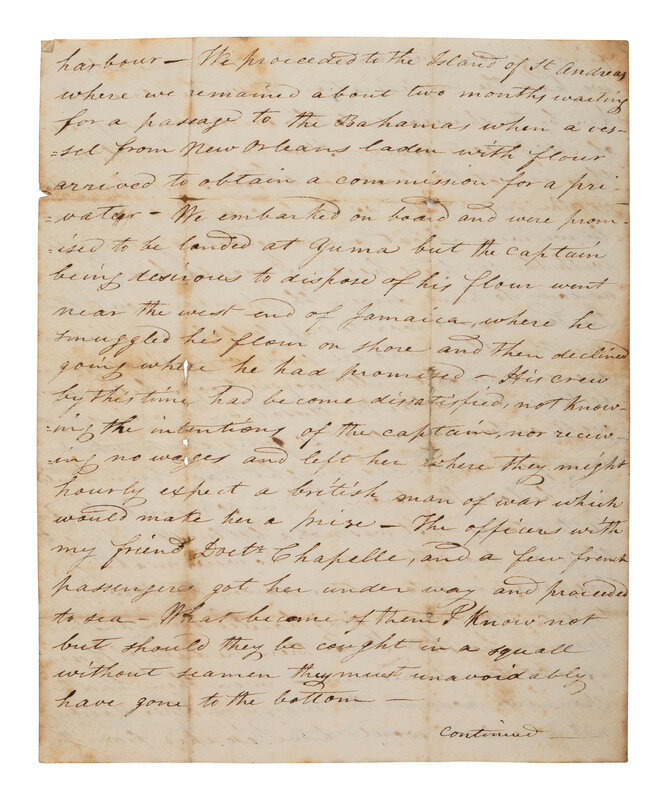 harbour — We proceeded to the Island of St Andreas
where we remained about two months waiting
for a passage to the Bahamas when a ves-
=sel from New Orleans laden with flour
arrived to obtain a commission for a pri-
=vateer — We embarked on board and were prom-
=ised to be landed at Yuma but the captain
being desirous to dispose of his flour went
near the west end of Jamaica, where he
smuggled his flour on shore and then declined
going where he had promised — His crew
by this time had become dissatisfied, not know-
=ing the intentions of the captain, nor receiv-
=ing no wages and left her where they might
hourly expect a british man of war which
would make her a prize — The officers with
my friend Doctr Chapelle, and a few french
passengers got her under way and proceeded
to sea — What became of them I know not
but should they be cought in a squall
without seamen they must unavoidably
have gone to the bottom —
Continued —